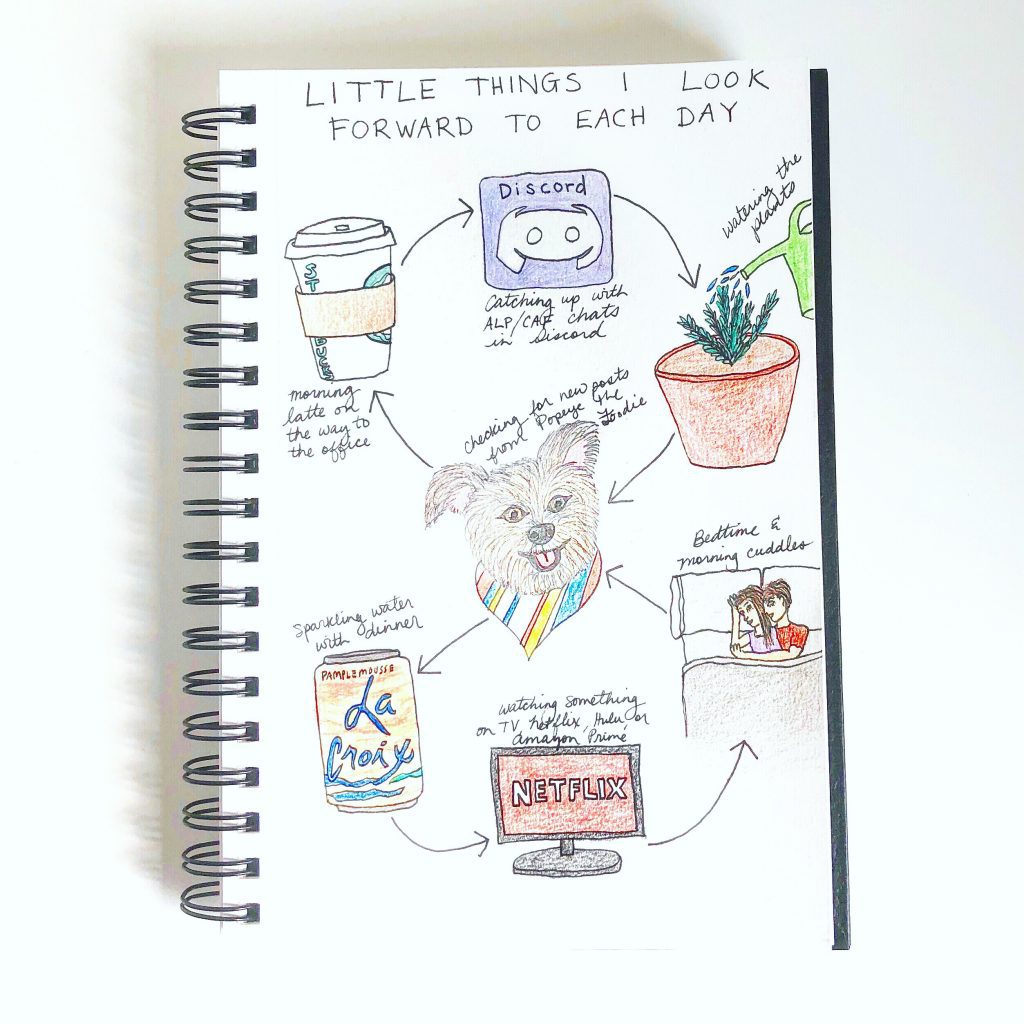 LITTLE THINGS I LOOK
FORWARD TO EACH DAY
Discord
Catching up with
ALP/CAF chats
in Discord
watering the
plants
ST
BUCKS
morning
latte on
the way to
the office
checking for new posts
from Popeye the
Foodie
Bedtime &
morning cuddles
Sparkling water
with dinner
PAMPLEMOUSSE
La
Croix
watching something
on TV, Netflix, Hulu or
Amazon Prime
NETFLIX